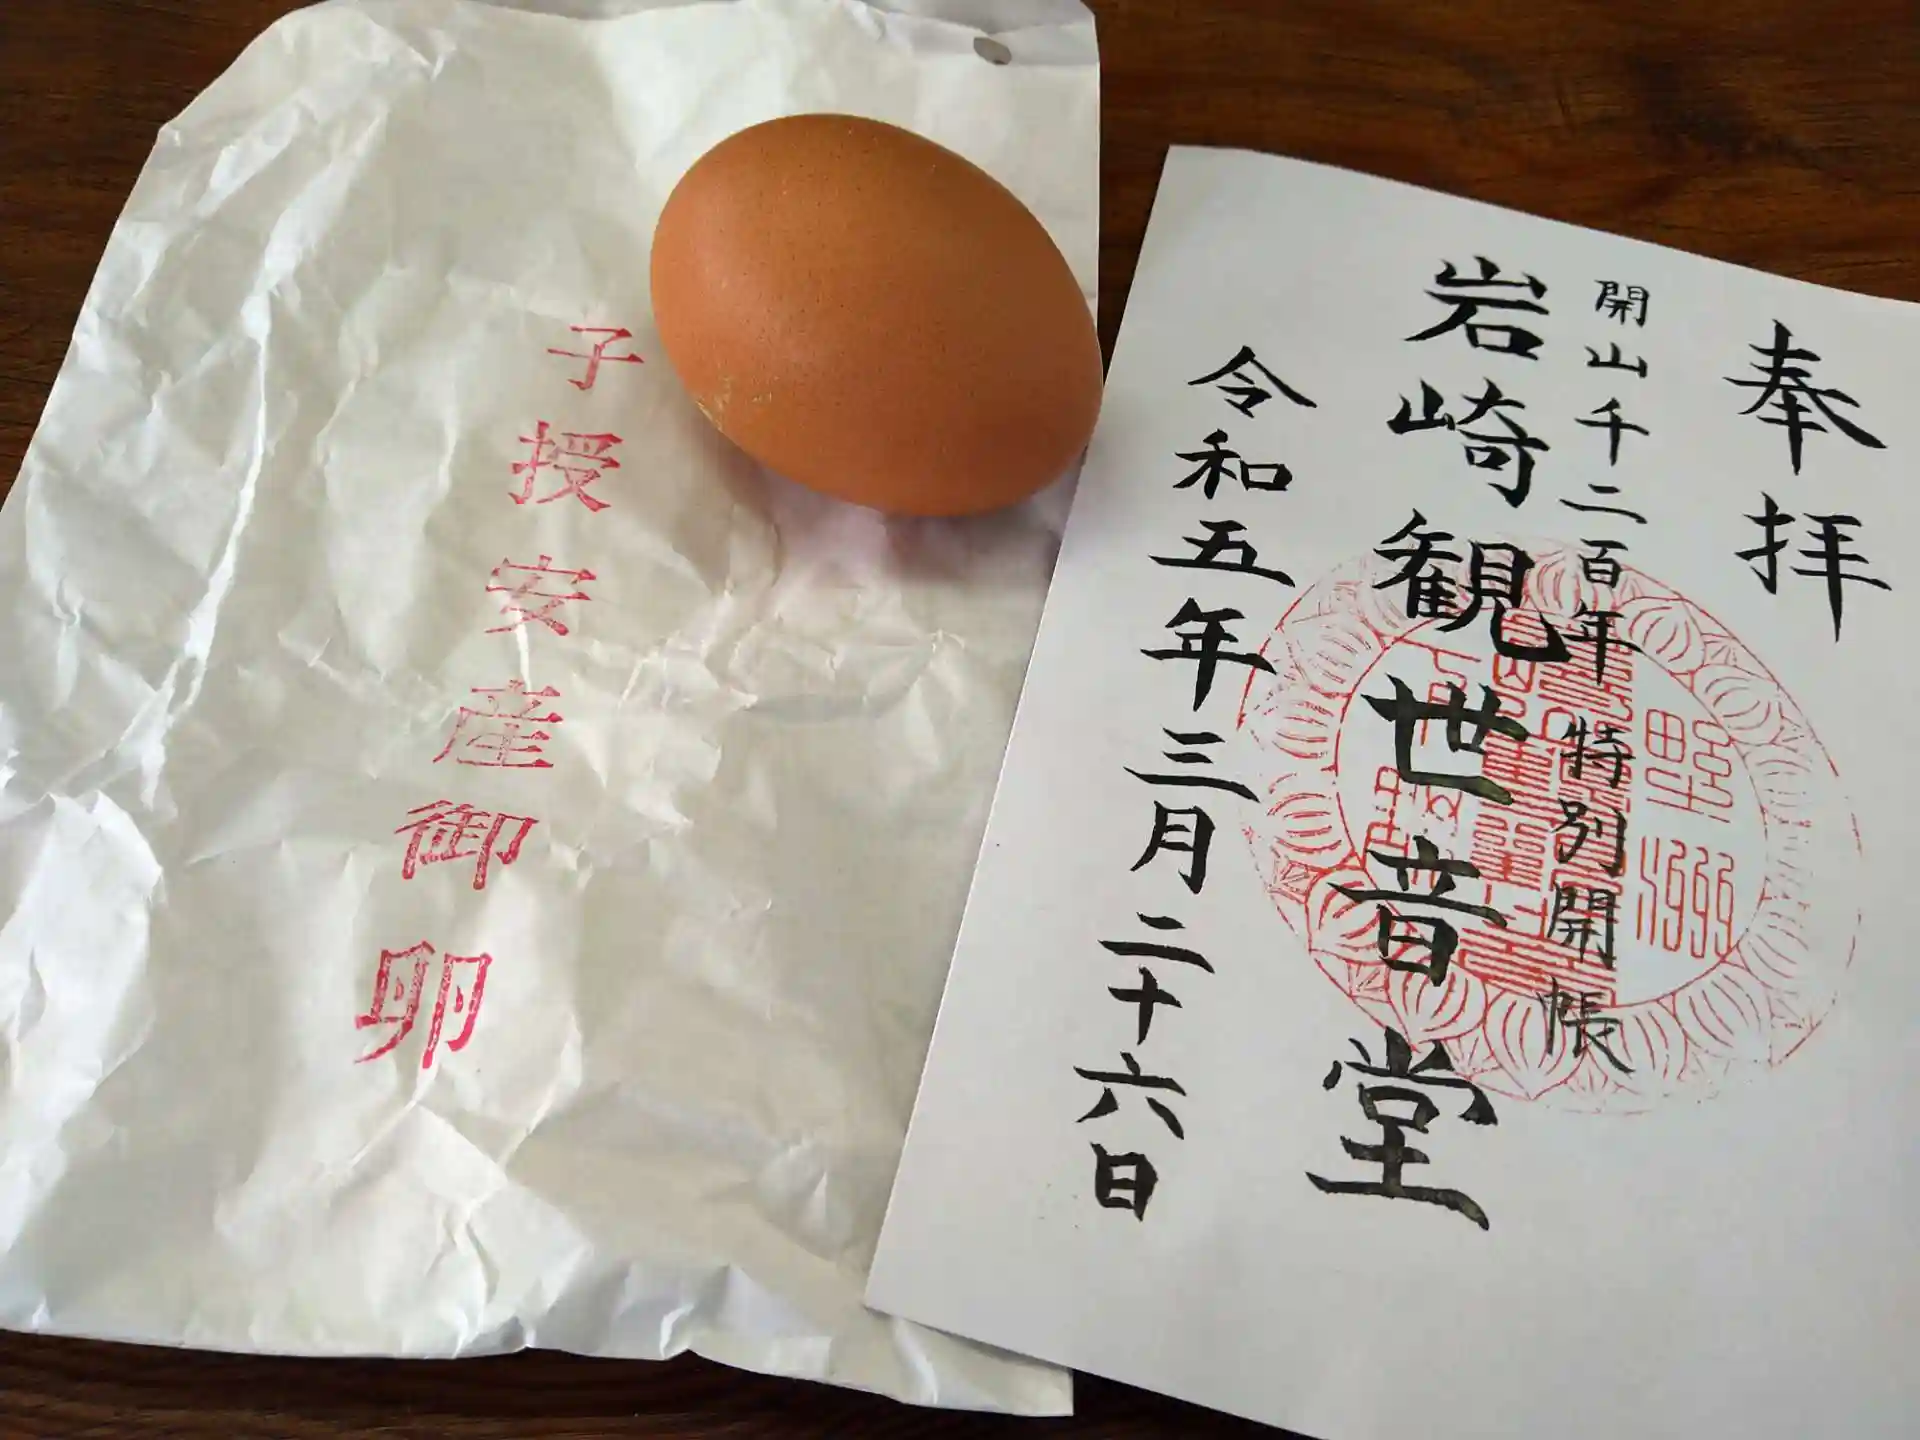 子授安産御卵
奉拝
開山千二百年特別開帳
岩崎観世音堂
令和五年三月二十六日
野州